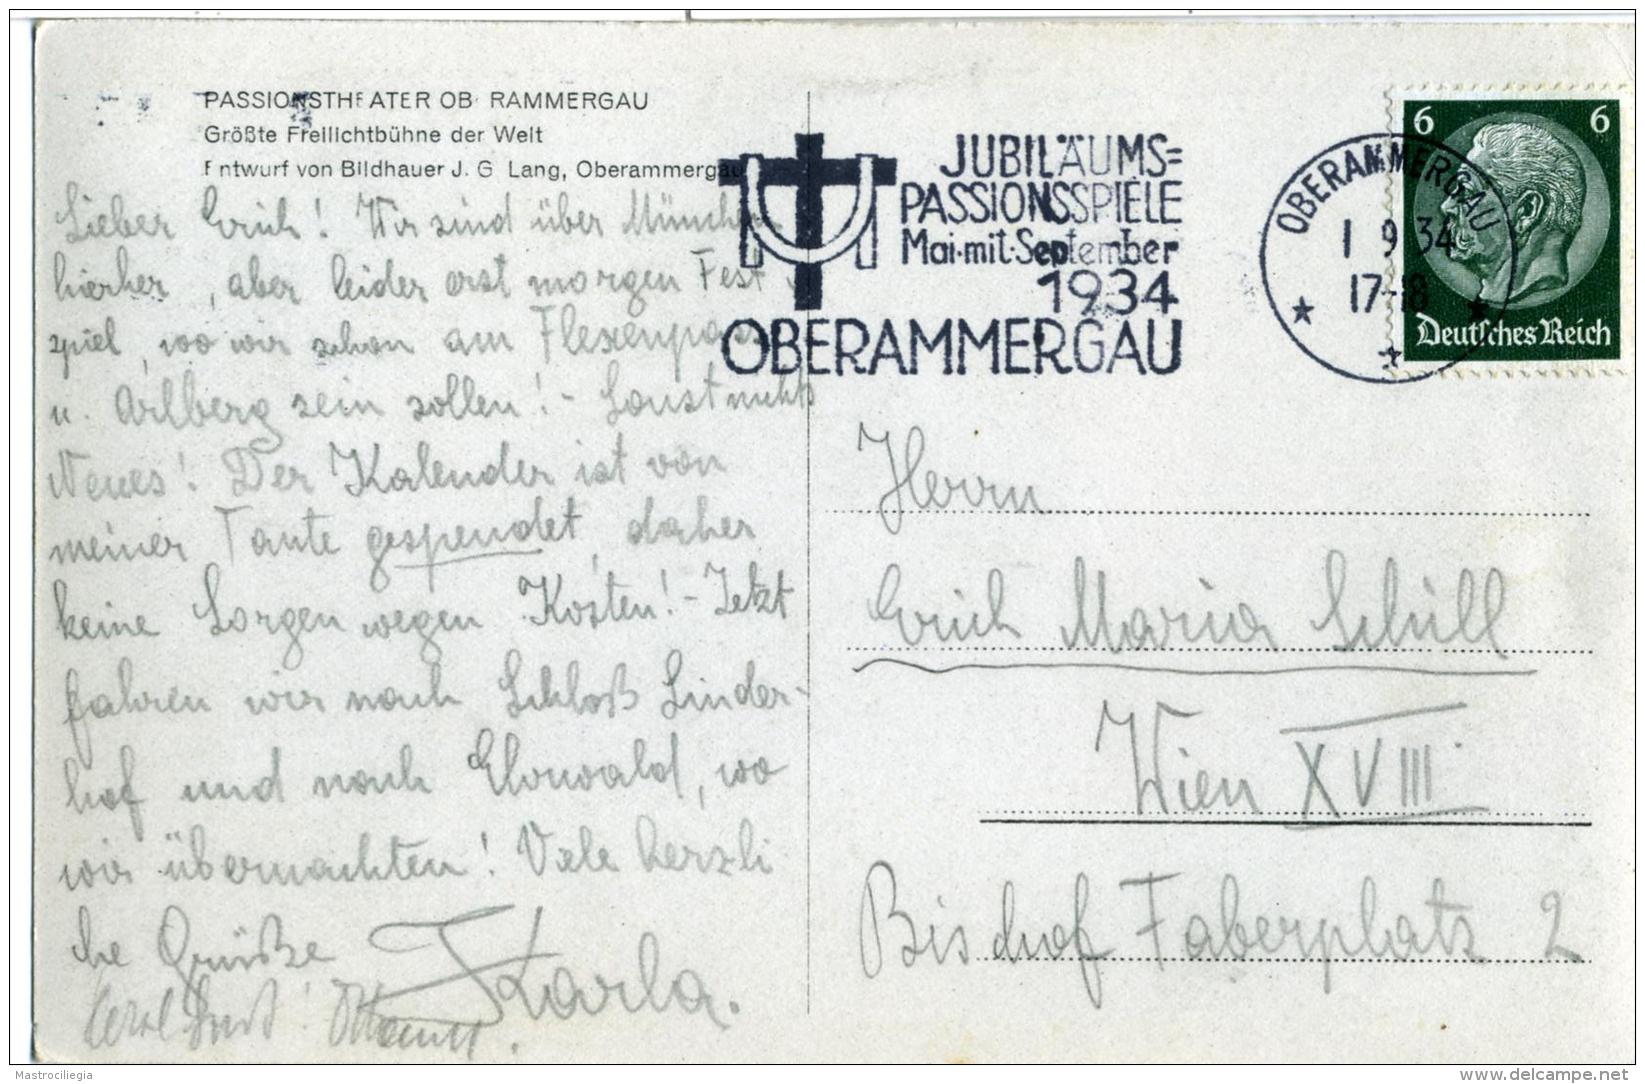 PASSIONSTHEATER OB RAMMERGAU
Größte Freilichtbühne der Welt
Entwurf von Bildhauer J. G Lang, Oberammergau
Lieber Erich! Wir sind über München
hierher, aber leider erst morgen Fest-
spiel, wo wir schon am Flexenpass
u. Arlberg sein sollen! - Sonst nichts
Neues! Der Kalender ist von
meiner Tante gespendet, daher
keine Sorgen wegen Kosten! - Jetzt
fahren wir nach Schloß Linder-
hof und nach Ehrwald, wo
wir übernachten! Viele herzli
che Grüße Karla.
JUBILÄUMS=
PASSIONSSPIELE
Mai-mit-September
1934
OBERAMMERGAU
OBERAMMERGAU
1 9 34
17-18
6 6
Deutsches Reich
Herrn
Erich Maria Schüll
Wien XVIII
Bischof Faberplatz 2
Mastrociliegia
www.delcampe.net